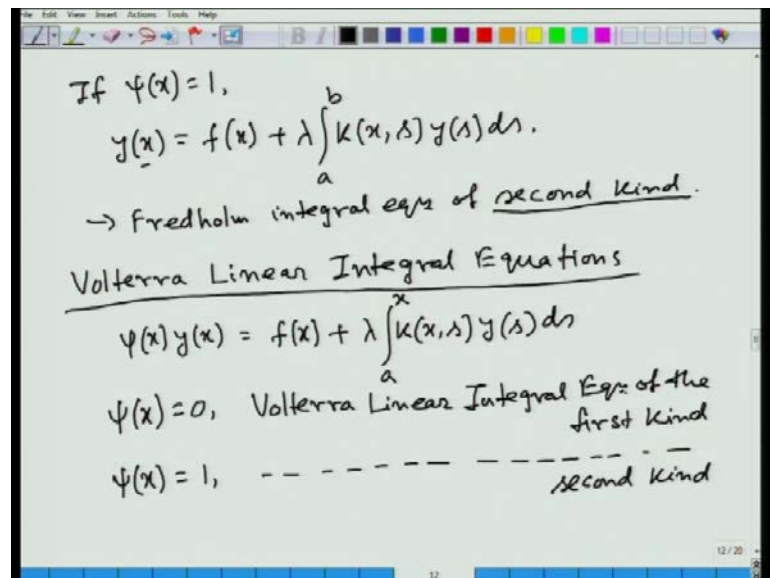 File Edit View Insert Actions Tools Help
If ψ(x) = 1,
y(x) = f(x) + λ∫ₐᵇ K(x, s) y(s) ds.
→ Fredholm integral eqn of second kind.
Volterra Linear Integral Equations
ψ(x) y(x) = f(x) + λ∫ₐˣ K(x, s) y(s) ds
ψ(x) = 0, Volterra Linear Integral Eqn of the
first kind
ψ(x) = 1, -- -- -- -- -- -- -- -- second kind
12 / 20
12